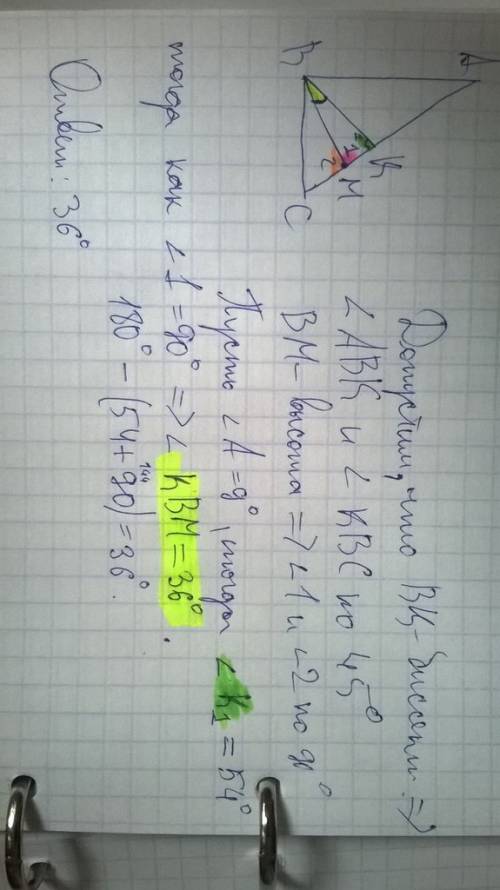 A
B
K
1
M
2
C
Допустим, что BK - биссект. =>
∠ABK и ∠KBC по 45°
BM - высота => ∠1 и ∠2 по 90°
Пусть ∠A = 9°, тогда ∠K₁ = 54°
тогда как ∠1 = 90° => ∠KBM = 36°.
144
180° - (54 + 90) = 36°.
Ответ: 36°